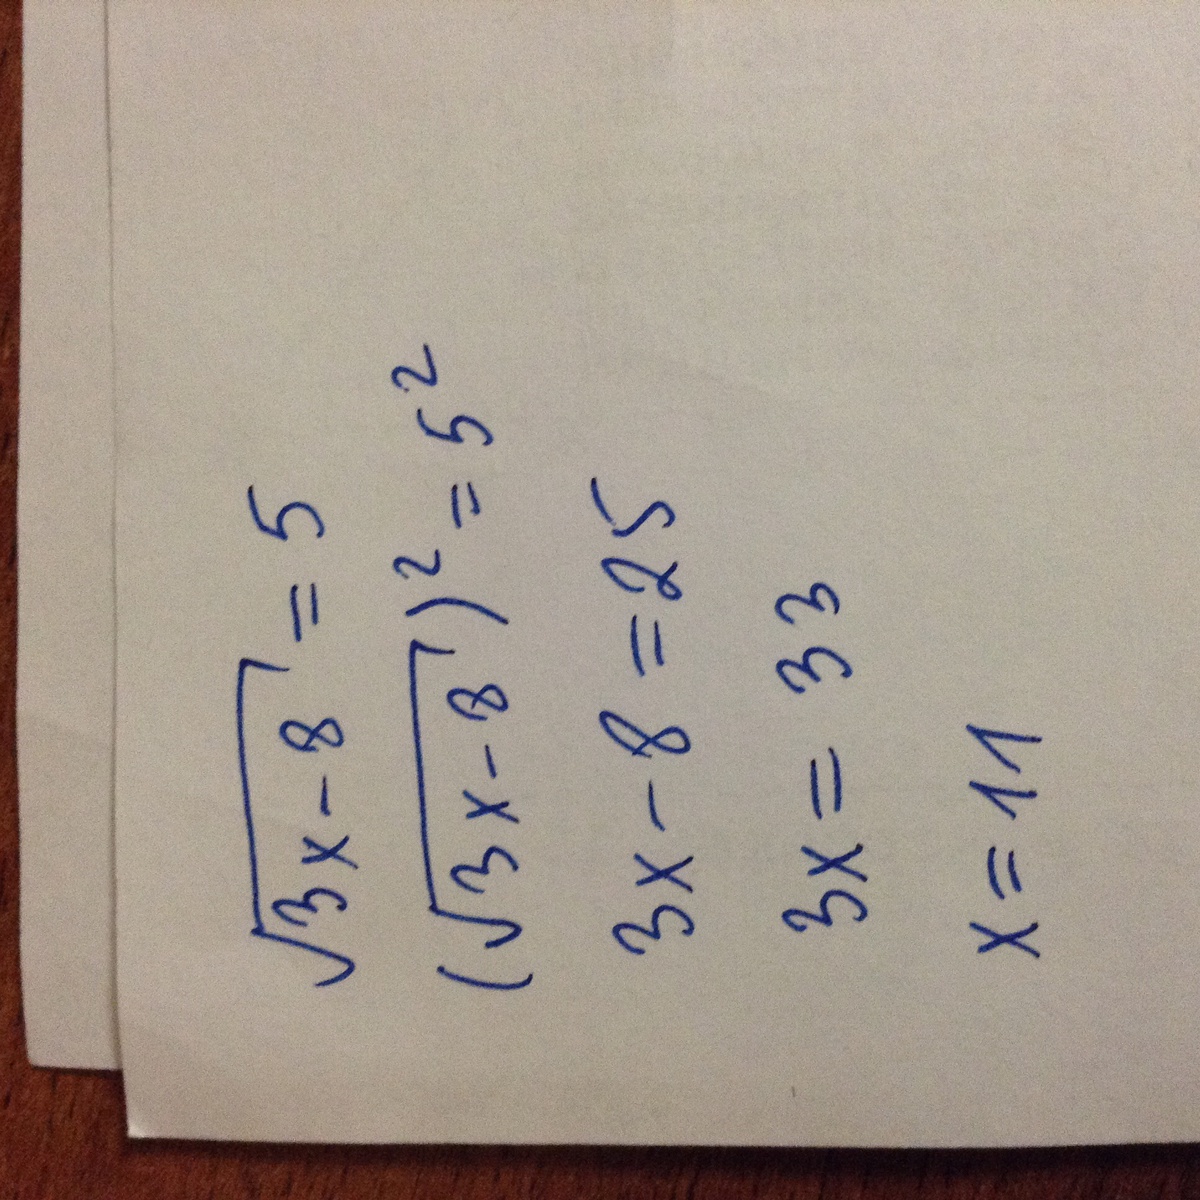 √(3x-8) = 5
(√(3x-8))² = 5²
3x-8 = 25
3x = 33
x = 11